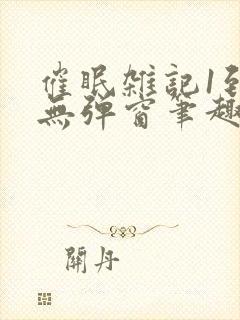 催眠雑記1至
無彈窗筆趣
關丹